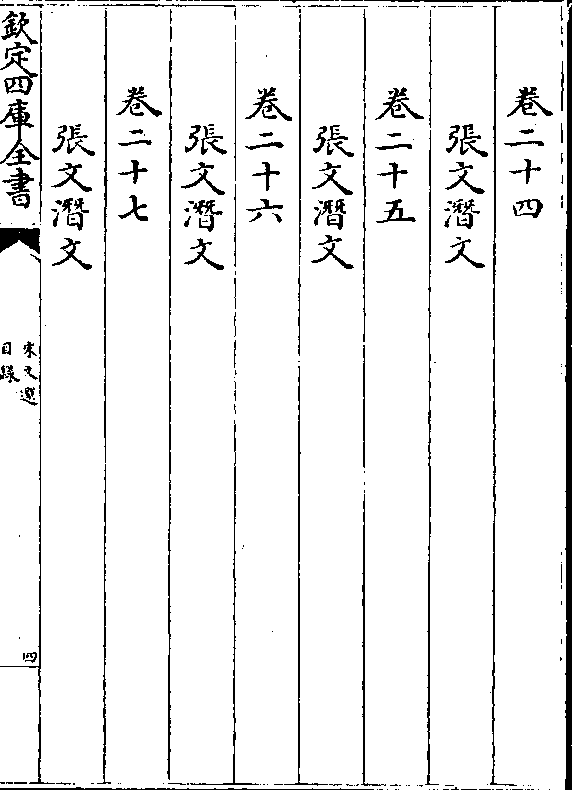 卷二十四
張文潛文
卷二十五
張文潛文
卷二十六
張文潛文
卷二十七
張文潛文
欽定四庫全書
宋文選
目錄
四